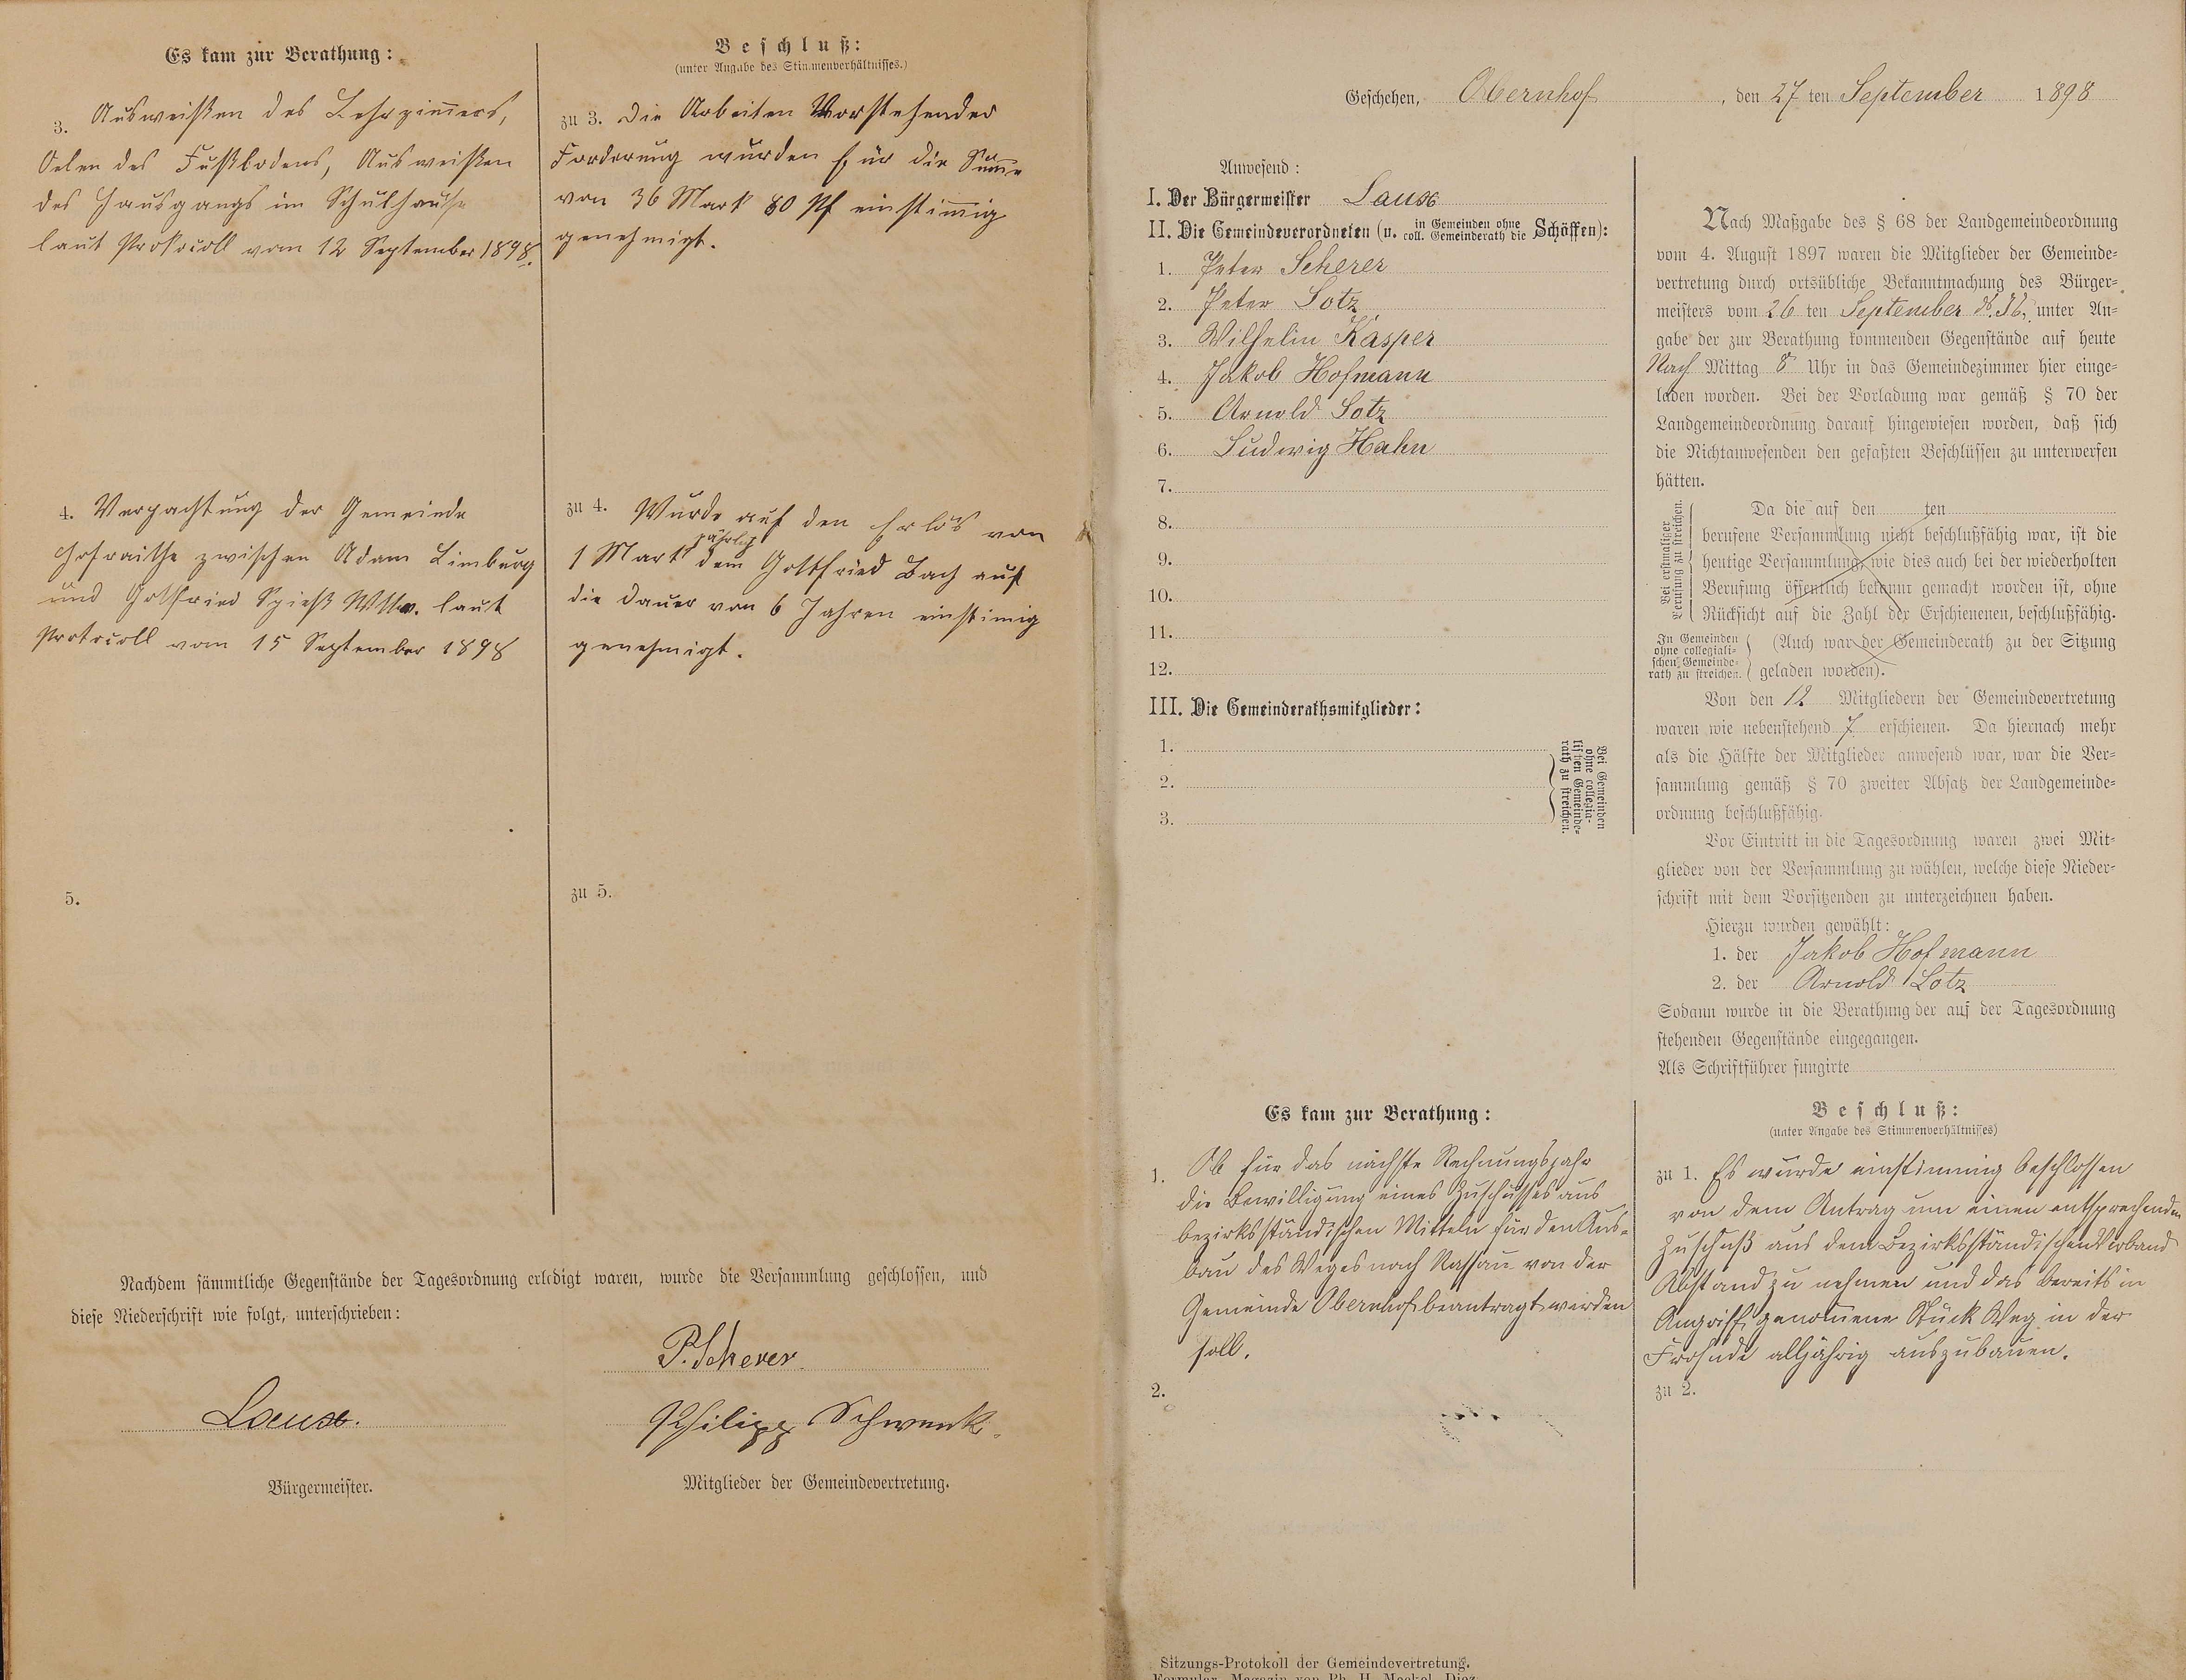 Es kam zur Berathung:
3. Ausweißen des Lehrzimmers,
Oelen des Fußbodens, Ausweißen
des Hausgangs im Schulhause
laut Protocoll vom 12 September 1898.
4. Verpachtung der Gemeinde
Hofraithe zwischen Adam Limburg
und Gottfried Spieß Wttw. laut
Protocoll vom 15 September 1898
5.
Beschluß:
(unter Angabe des Stimmenverhältnisses.)
zu 3. Die Arbeiten Vorstehender
Forderung wurden für die Summe
von 36 Mark 80 Pf einstimmig
genehmigt.
zu 4. Wurde auf den Erlös von
1 Mark jährlich dem Gottfried Bach auf
die Dauer von 6 Jahren einstimig
genehmigt.
zu 5.
Nachdem sämmtliche Gegenstände der Tagesordnung erledigt waren, wurde die Versammlung geschlossen, und
diese Niederschrift wie folgt, unterschrieben:
P. Scherer
Laux.
Philipp Schwenk.
Bürgermeister.
Mitglieder der Gemeindevertretung.
Geschehen, Obernhof, den 27 ten September 1898
Anwesend:
I. Der Bürgermeister Laux
II. Die Gemeindeverordneten (u. in Gemeinden ohne coll. Gemeinderath die Schöffen):
1. Peter Scherer
2. Peter Lotz
3. Wilhelm Kasper
4. Jakob Hofmann
5. Arnold Lotz
6. Ludwig Hahn
7.
8.
9.
10.
11.
12.
III. Die Gemeinderathsmitglieder:
1.
2.
3.
Bei Gemeinden
ohne collegia-
lischen Gemeinde-
rath zu streichen.
Nach Maßgabe des § 68 der Landgemeindeordnung
vom 4. August 1897 waren die Mitglieder der Gemeinde-
vertretung durch ortsübliche Bekanntmachung des Bürger-
meisters vom 26 ten September d. Js. unter An-
gabe der zur Berathung kommenden Gegenstände auf heute
Nach Mittag 8 Uhr in das Gemeindezimmer hier einge-
laden worden. Bei der Vorladung war gemäß § 70 der
Landgemeindeordnung darauf hingewiesen worden, daß sich
die Nichtanwesenden den gefaßten Beschlüssen zu unterwerfen
hätten.
Bei erstmaliger
Berufung zu streichen.
Da die auf den ten
berufene Versammlung nicht beschlußfähig war, ist die
heutige Versammlung, wie dies auch bei der wiederholten
Berufung öffentlich bekannt gemacht worden ist, ohne
Rücksicht auf die Zahl der Erschienenen, beschlußfähig.
In Gemeinden
ohne collegiali-
schen Gemeinde-
rath zu streichen.
(Auch war der Gemeinderath zu der Sitzung
geladen worden).
Von den 12 Mitgliedern der Gemeindevertretung
waren wie nebenstehend 7 erschienen. Da hiernach mehr
als die Hälfte der Mitglieder anwesend war, war die Ver-
sammlung gemäß § 70 zweiter Absatz der Landgemeinde-
ordnung beschlußfähig.
Vor Eintritt in die Tagesordnung waren zwei Mit-
glieder von der Versammlung zu wählen, welche diese Nieder-
schrift mit dem Vorsitzenden zu unterzeichnen haben.
Hierzu wurden gewählt:
1. der Jakob Hofmann
2. der Arnold Lotz
Sodann wurde in die Berathung der auf der Tagesordnung
stehenden Gegenstände eingegangen.
Als Schriftführer fungirte
Es kam zur Berathung:
1. Ob für das nächste Rechnungsjahr
die Bewilligung eines Zuschusses aus
bezirksständischen Mitteln für den Aus-
bau des Weges nach Nassau von der
Gemeinde Obernhof beantragt werden
soll.
2.
Beschluß:
(unter Angabe des Stimmenverhältnisses)
zu 1. Es wurde einstimmig beschlossen
von dem Antrag um einen entsprechenden
Zuschuß aus dem Bezirksständischen Verband
Abstand zu nehmen und das bereits in
Angriff genomene Stück Weg in der
Frohnde alljährig auszubauen.
zu 2.
Sitzungs-Protokoll der Gemeindevertretung.
Formular-Magazin von Ph. H. Meckel, Diez